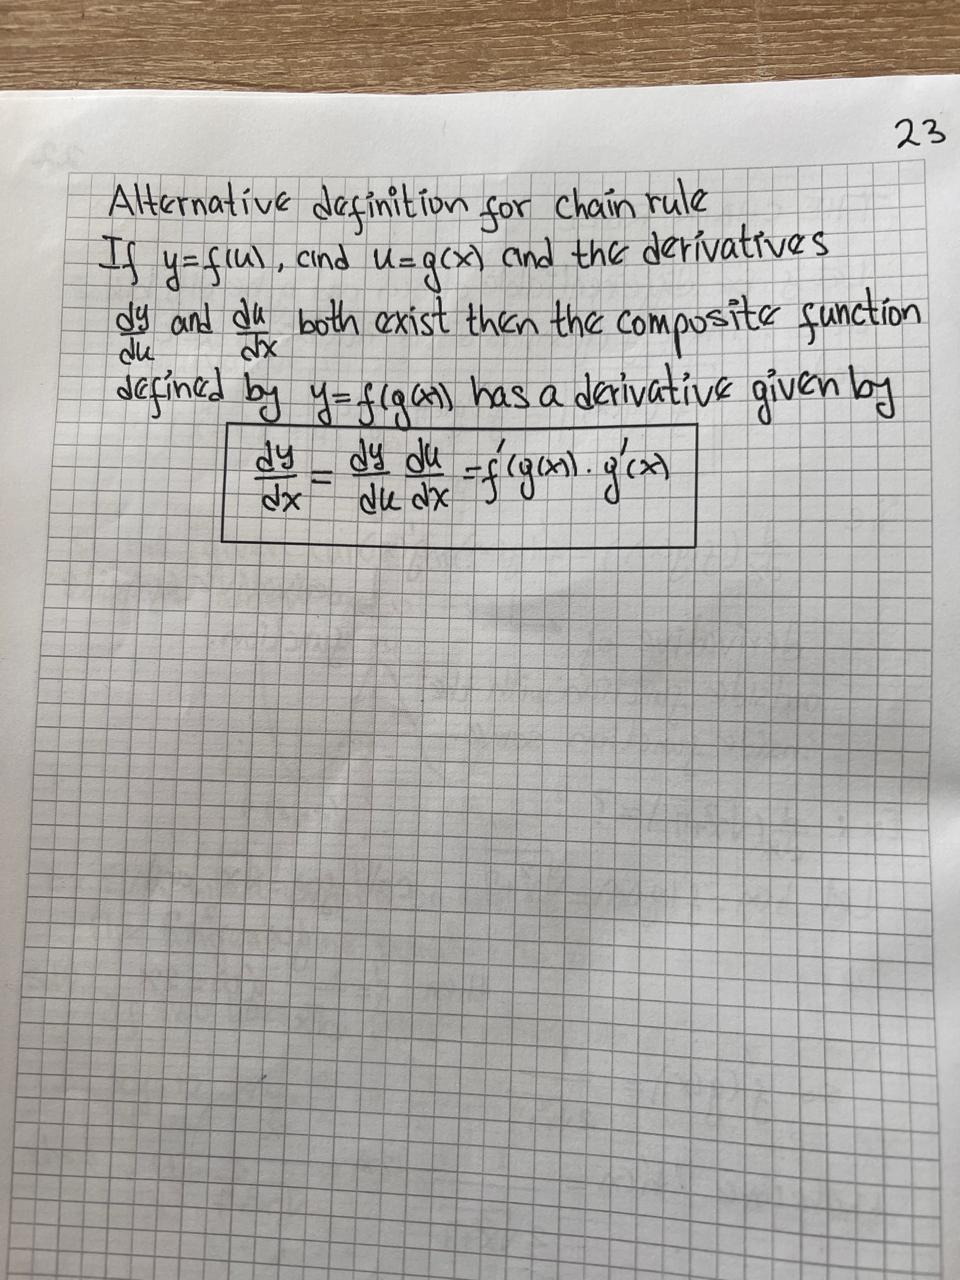 23
Alternative definition for chain rule
If y=f(u), and u=g(x) and the derivatives
dy/du and du/dx both exist then the composite function
defined by y=f(g(x)) has a derivative given by
dy/dx = dy/du du/dx = f'(g(x)) · g'(x)